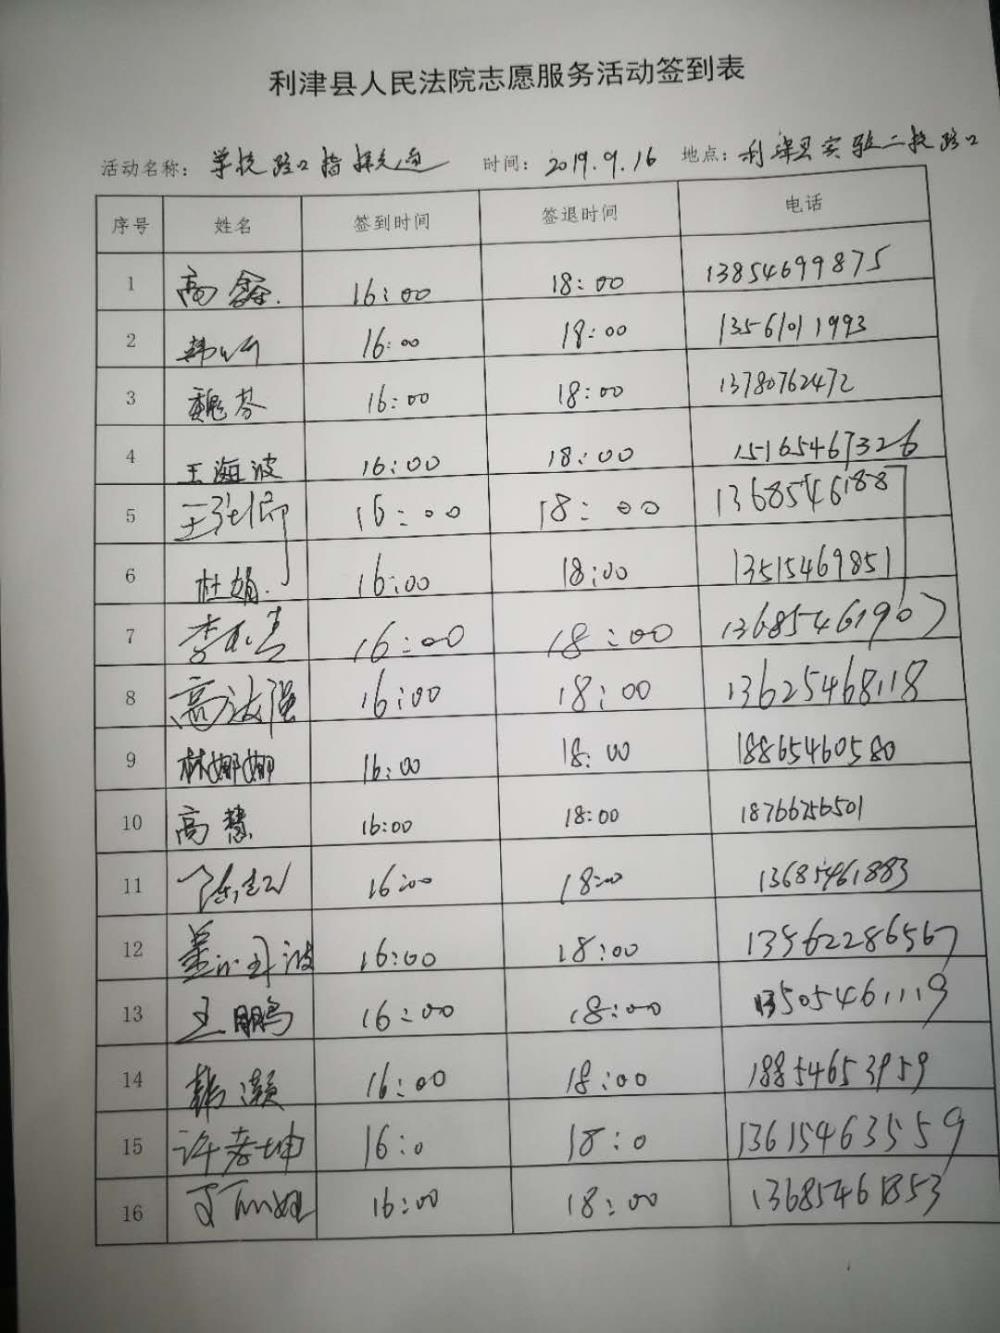 利津县人民法院志愿服务活动签到表
活动名称： 学校路口指挥交通 时间： 2019.9.16 地点： 利津县实验二校路口
序号 姓名 签到时间 签退时间 电话
1 高鑫. 16:00 18:00 13854699875
2 韩 16:00 18:00 13561011993
3 魏芬 16:00 18:00 13780762472
4 王海波 16:00 18:00 15165467326
5 王 16:00 18:00 13685461887
6 杜娟. 16:00 18:00 13515469851
7 李 16:00 18:00 13685461967
8 高波强 16:00 18:00 13625468118
9 林娜娜 16:00 18:00 18865460580
10 高慧 16:00 18:00 18766256501
11 16:00 18:00 13685461883
12 16:00 18:00 13562286567
13 王鹏 16:00 18:00 13505461119
14 韩灏 16:00 18:00 18854653959
15 许孝坤 16:0 18:0 13615463559
16 16:00 18:00 13685461853